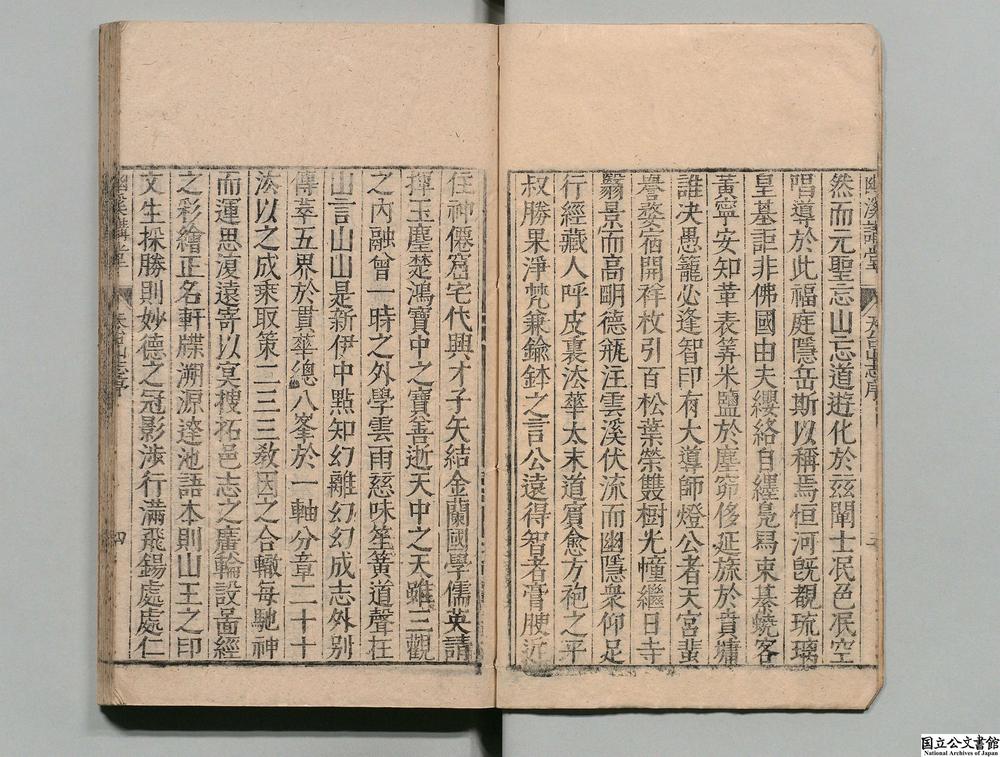 幽溪講堂 天台山志序
然而元聖忘山忘道遊化於茲闡士泯色泯空
唱導於此福庭隱岳斯以稱焉恒河旣覩琉璃
皇基詎非佛國由夫纓絡自纆鳧舄束綦蟯客
黃寧安知華表筭米鹽於塵窌侈延旅於賁墉
誰决愚籠必逢智印有大導師燈公者天宮蜚
譽婺宿開祥枚引百松葉榮雙樹光幢繼日寺
翳景而高明德瓶汪雲溪伏流而幽隱衆仰足
行經藏人呼皮裏法華太末道賓愈方袍之平
叔勝果淨梵兼鍮鉢之言公遠得智者膏腴近
住神僊窟宅代興才子矢結金蘭國學儒英請
揮玉麈楚鴻寶中之寶善逝天中之天雖三觀
之內融曾一時之外學雲雨慈味笙簧道聲在
山言山山是新伊中點知幻離幻幻成志外別
傳萃五界於貫華總八峯於一軸分章二十十
法以之成乘取策二三三敎因之合轍每馳神
而運思夐遠寄以冥搜拓邑志之廣輪設啚經
之彩繪正名軒牒溯源邃池語本則山王之印
文生採勝則妙德之冠影涉行滿飛錫處處仁
幽溪講堂 天台山志序 四
国立公文書館
National Archives of Japan